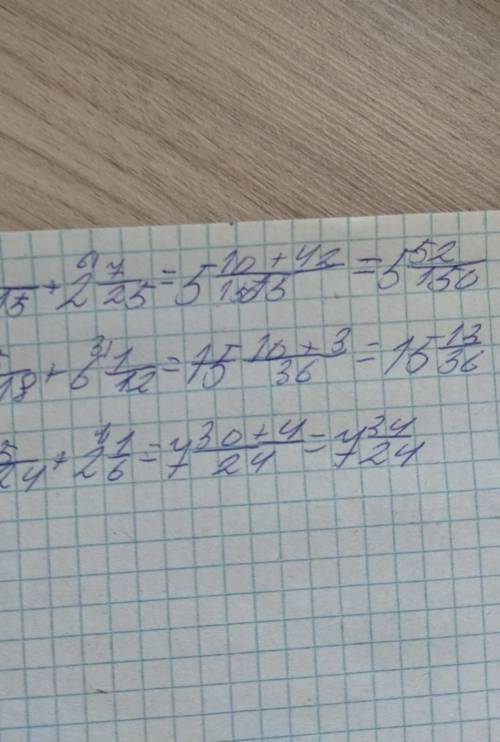 /15 + 2 6 7/25 = 5 10 + 42/150 = 5 52/150
/18 + 6 3 1/12 = 15 10 + 3/36 = 15 13/36
5/24 + 2 4 1/6 = 7 30 + 4/24 = 7 34/24